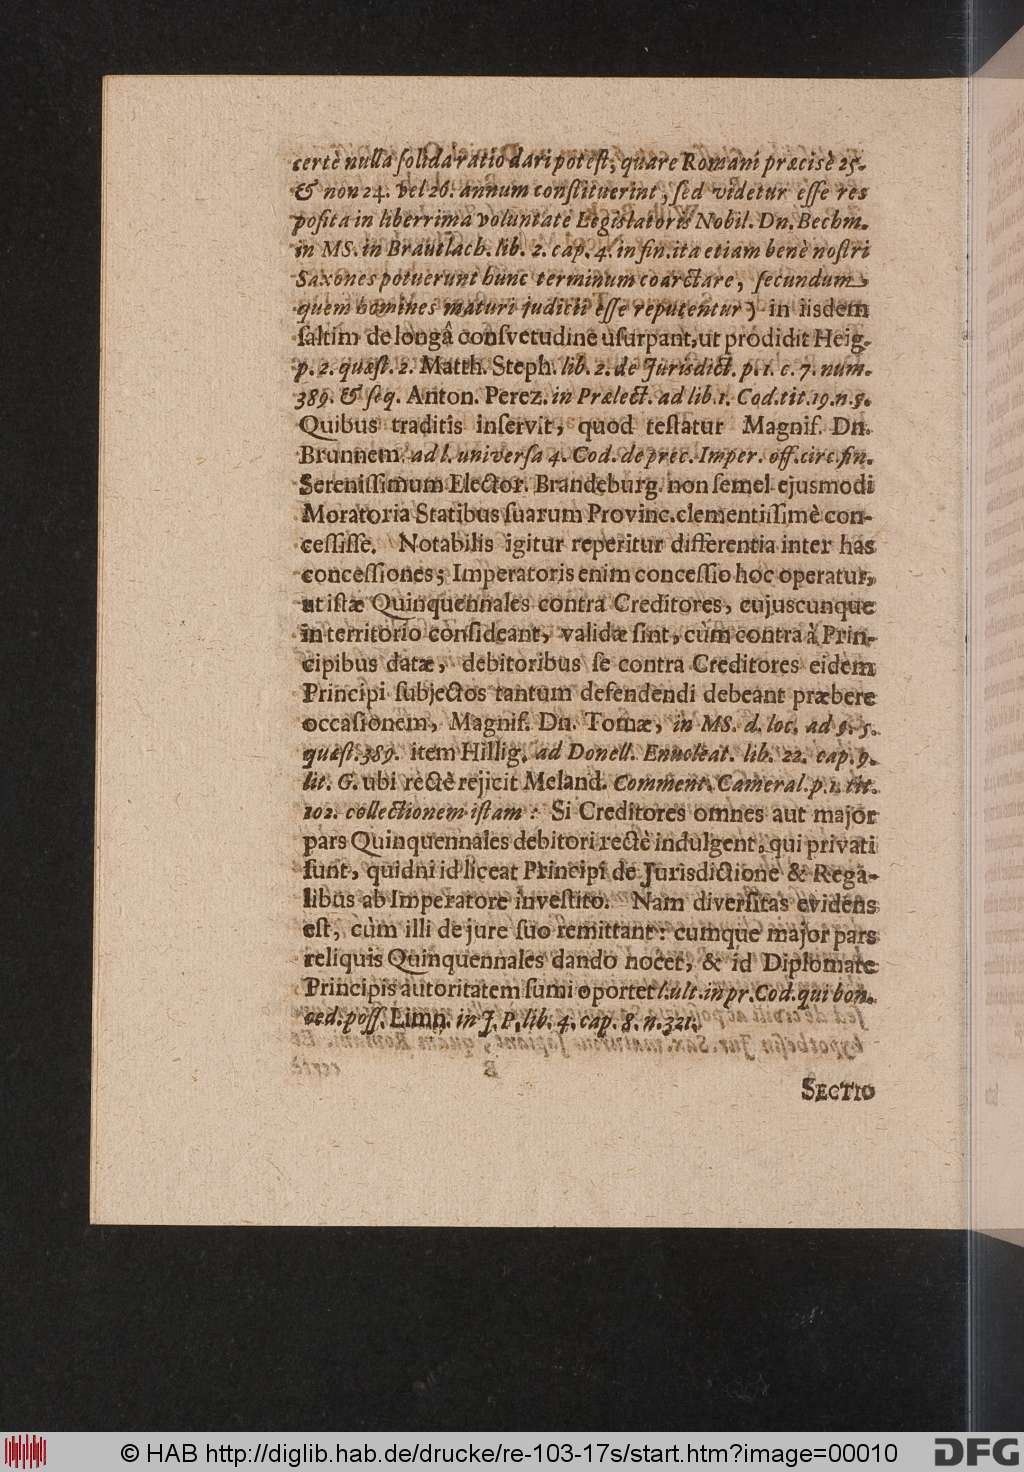 certè nulla ſolida ratio dari poteſt, quare Romani præcisè 25.
& non 24. vel 26. annum conſtituerint, ſed videtur eſſe res
poſita in liberrima voluntate Legislatoris Nobil. Dn. Bechm.
in MS. in Brautlach. lib. 2. cap. 4. in fin. ita etiam benè noſtri
Saxones potuerunt hunc terminum coarctare, ſecundum
quem homines maturi judicii eſſe reputentur) in iisdem
ſaltim de longâ conſvetudine uſurpant, ut prodidit Heig.
p. 2. quæſt. 2. Matth. Steph. lib. 2. de Jurisdict. p. 1. c. 7. num.
389. & ſeq. Anton. Perez. in Prælect. ad lib. 1. Cod. tit. 19. n. 5.
Quibus traditis inſervit, quod teſtatur Magnif. Dn.
Brunnem. ad l. univerſa 4. Cod. de prec. Imper. off. circ. fin.
Sereniſſimum Elector. Brandeburg. non ſemel ejusmodi
Moratoria Statibus ſuarum Provinc. clementiſſimè con-
ceſſiſſe. Notabilis igitur reperitur differentia inter has
conceſſiones; Imperatoris enim conceſſio hoc operatur,
ut iſtæ Quinquennales contra Creditores, cujuscunque
in territorio conſideant, validæ ſint, cùm contra à Prin-
cipibus datæ, debitoribus ſe contra Creditores eidem
Principi ſubjectos tantum defendendi debeant præbere
occaſionem, Magnif. Dn. Tomæ, in MS. d. loc. ad §. 5.
quæſt. 389. item Hillig. ad Donell. Enucleat. lib. 22. cap. 9.
lit. G. ubi rectè rejicit Meland. Comment. Cameral. p. 1. tit.
102. collectionem iſtam: Si Creditores omnes aut major
pars Quinquennales debitori rectè indulgent, qui privati
ſunt, quidni id liceat Principi de Jurisdictione & Rega-
libus ab Imperatore inveſtito. Nam diverſitas evidens
eſt, cùm illi de jure ſuo remittant: cumque major pars
reliquis Quinquennales dando nocet, & id Diplomate
Principis autoritatem ſumi oportet l. ult. in pr. Cod. qui bon.
ced. poſſ. Limn. in J. P. lib. 4. cap. 8. n. 321.
SECTIO
© HAB http://diglib.hab.de/drucke/re-103-17s/start.htm?image=00010
DFG